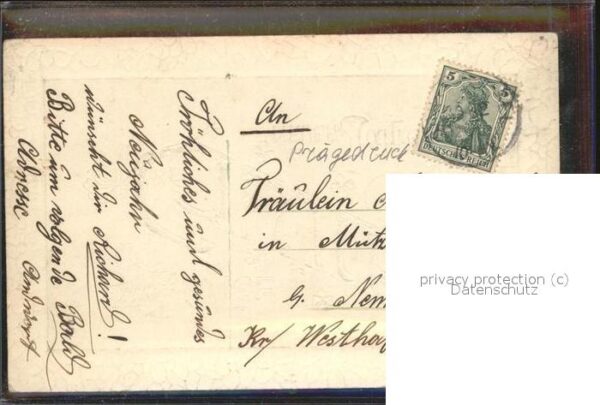 Fröhliches und gesundes
Neujahr
wünscht dir Richard!
Bitte um
Bald
Adresse
Antwort
An
Prägedruck
Fräulein
in Mütz
b. Nem
Kr/ Westha
5 5
DEUTSCHES REICH
privacy protection (c)
Datenschutz